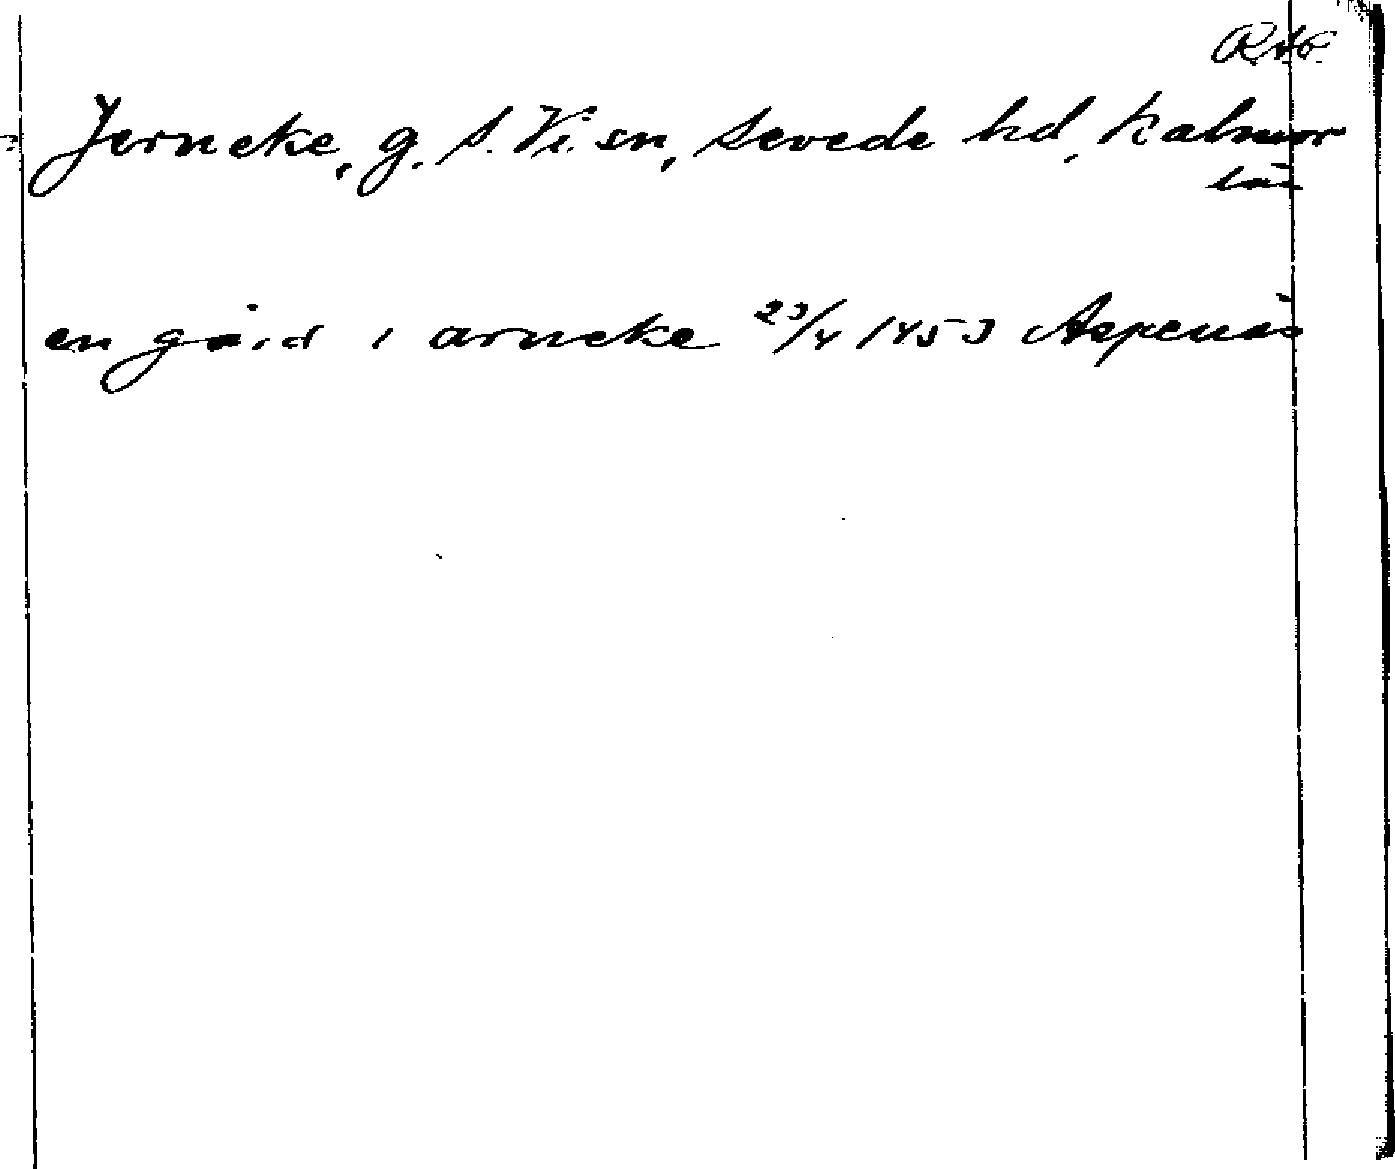 RAP.
Jerneke, g. S. Vi. sn, Sevede hd, Kalmar
län
en gård i arneke 23/4 1453 Aspenäs